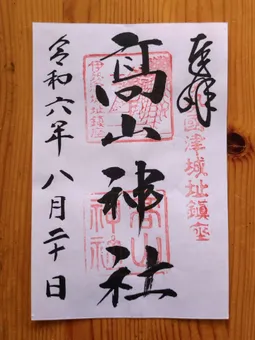 奉拝
国津城址鎮座
髙山神社
高山神社
令和六年八月二十日